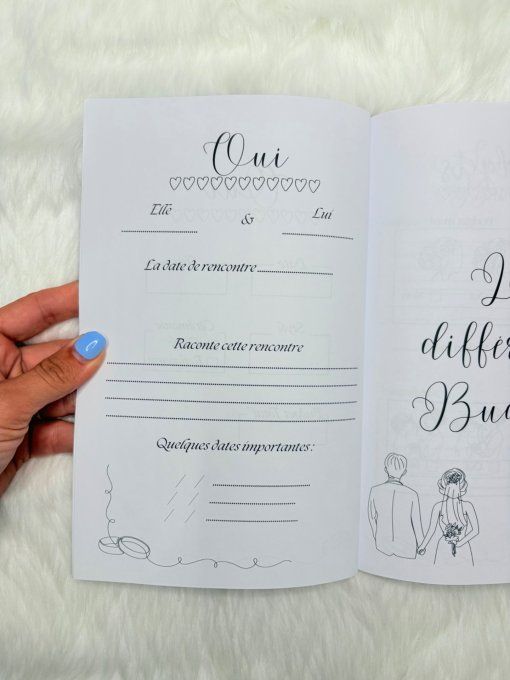 Oui
Elle & Lui
La date de rencontre
Raconte cette rencontre
Quelques dates importantes :
/ /
/ /
/ /